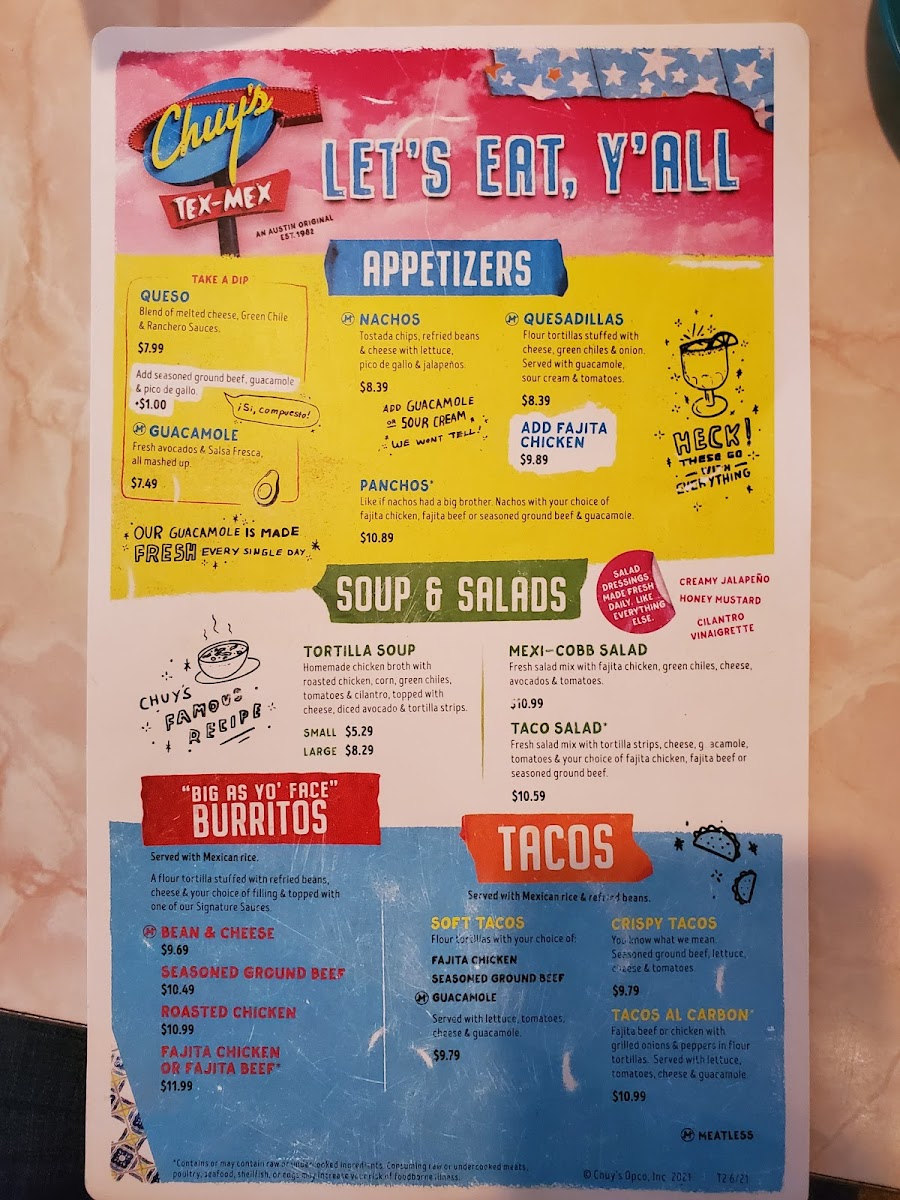 Chuy's
TEX-MEX
AN AUSTIN ORIGINAL
EST. 1982
LET'S EAT, Y'ALL
APPETIZERS
TAKE A DIP
QUESO
Blend of melted cheese, Green Chile
& Ranchero Sauces.
$7.99
Add seasoned ground beef, guacamole
& pico de gallo.
+$1.00
¡Si, compuesto!
Ⓜ GUACAMOLE
Fresh avocados & Salsa Fresca,
all mashed up.
$7.49
OUR GUACAMOLE IS MADE
FRESH EVERY SINGLE DAY
Ⓜ NACHOS
Tostada chips, refried beans
& cheese with lettuce,
pico de gallo & jalapeños.
$8.39
ADD GUACAMOLE
OR SOUR CREAM
WE WONT TELL!
Ⓜ QUESADILLAS
Flour tortillas stuffed with
cheese, green chiles & onion.
Served with guacamole,
sour cream & tomatoes.
$8.39
ADD FAJITA
CHICKEN
$9.89
PANCHOS*
Like if nachos had a big brother. Nachos with your choice of
fajita chicken, fajita beef or seasoned ground beef & guacamole.
$10.89
HECK!
THESE GO
WITH
EVERYTHING
SOUP & SALADS
SALAD
DRESSINGS
MADE FRESH
DAILY. LIKE
EVERYTHING
ELSE.
CREAMY JALAPEÑO
HONEY MUSTARD
CILANTRO
VINAIGRETTE
CHUY'S
FAMOUS
RECIPE
TORTILLA SOUP
Homemade chicken broth with
roasted chicken, corn, green chiles,
tomatoes & cilantro, topped with
cheese, diced avocado & tortilla strips.
SMALL $5.29
LARGE $8.29
MEXI-COBB SALAD
Fresh salad mix with fajita chicken, green chiles, cheese,
avocados & tomatoes.
$10.99
TACO SALAD*
Fresh salad mix with tortilla strips, cheese, guacamole,
tomatoes & your choice of fajita chicken, fajita beef or
seasoned ground beef.
$10.59
"BIG AS YO' FACE"
BURRITOS
Served with Mexican rice.
A flour tortilla stuffed with refried beans,
cheese & your choice of filling & topped with
one of our Signature Sauces.
Ⓜ BEAN & CHEESE
$9.69
SEASONED GROUND BEEF
$10.49
ROASTED CHICKEN
$10.99
FAJITA CHICKEN
OR FAJITA BEEF*
$11.99
TACOS
Served with Mexican rice & refried beans.
SOFT TACOS
Flour tortillas with your choice of:
FAJITA CHICKEN
SEASONED GROUND BEEF
Ⓜ GUACAMOLE
Served with lettuce, tomatoes,
cheese & guacamole.
$9.79
CRISPY TACOS
You know what we mean.
Seasoned ground beef, lettuce,
cheese & tomatoes.
$9.79
TACOS AL CARBON*
Fajita beef or chicken with
grilled onions & peppers in flour
tortillas. Served with lettuce,
tomatoes, cheese & guacamole.
$10.99
Ⓜ MEATLESS
*Contains or may contain raw or undercooked ingredients. Consuming raw or undercooked meats,
poultry, seafood, shellfish, or eggs may increase your risk of foodborne illness.
© Chuy's Opco, Inc. 2021 T2 6/21